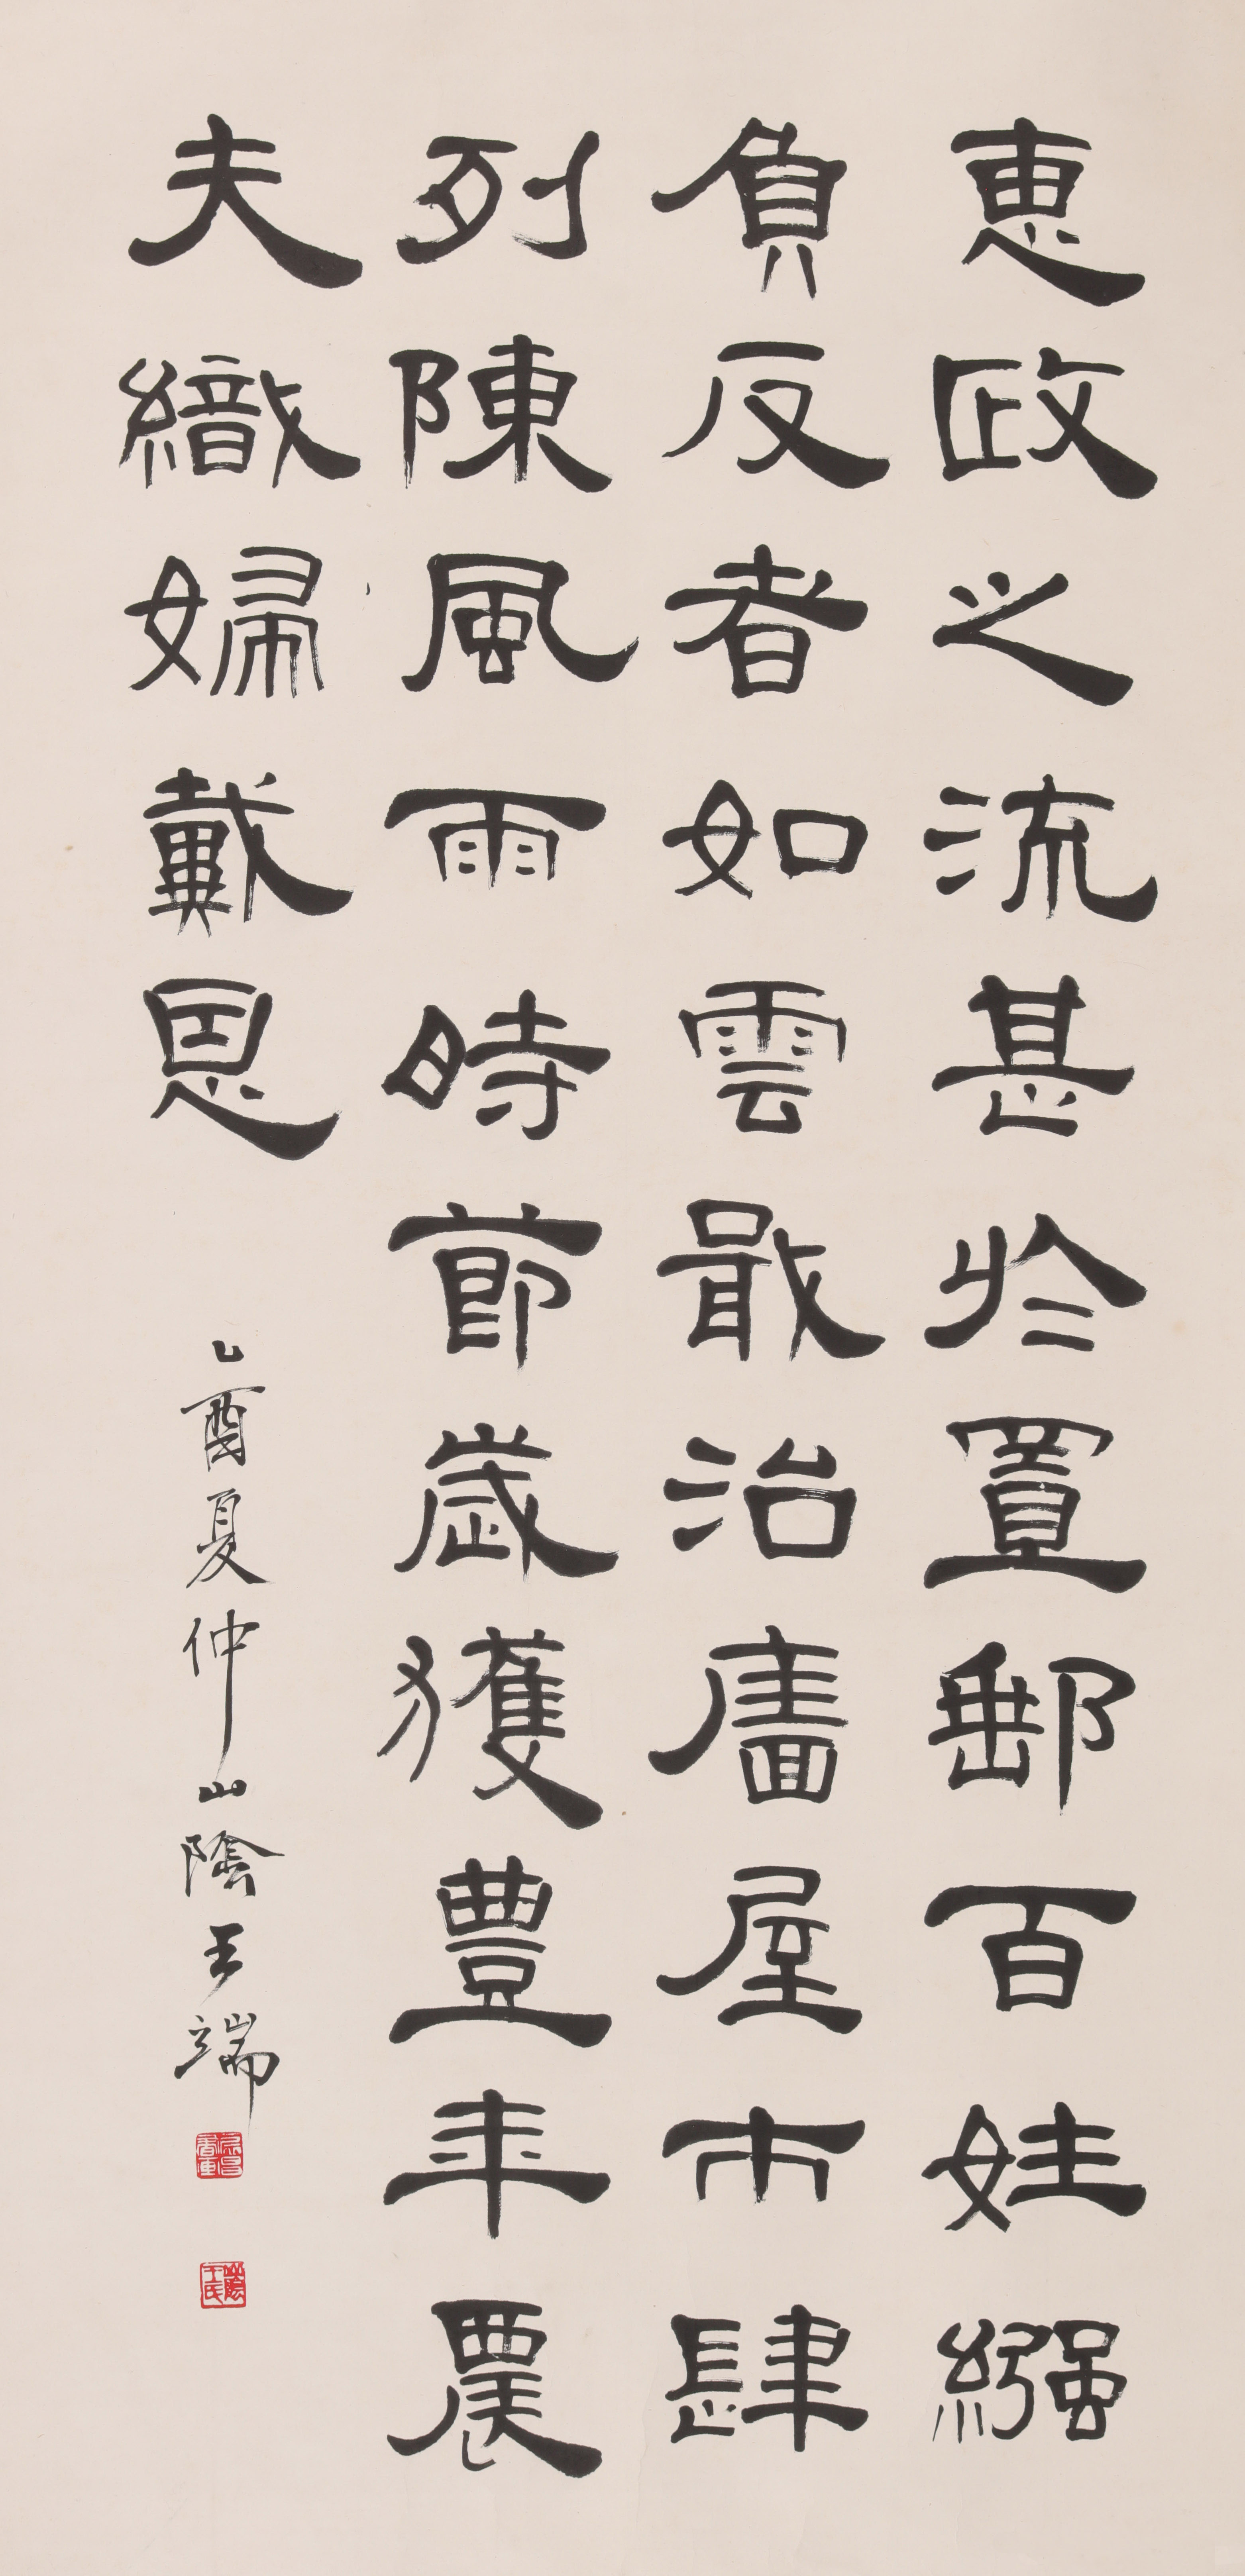 惠政之流甚於置郵百姓繈
負反者如雲戢治廧屋市肆
列陳風雨時節歲獲豐年農
夫織婦戴恩
乙酉夏仲山陰王端